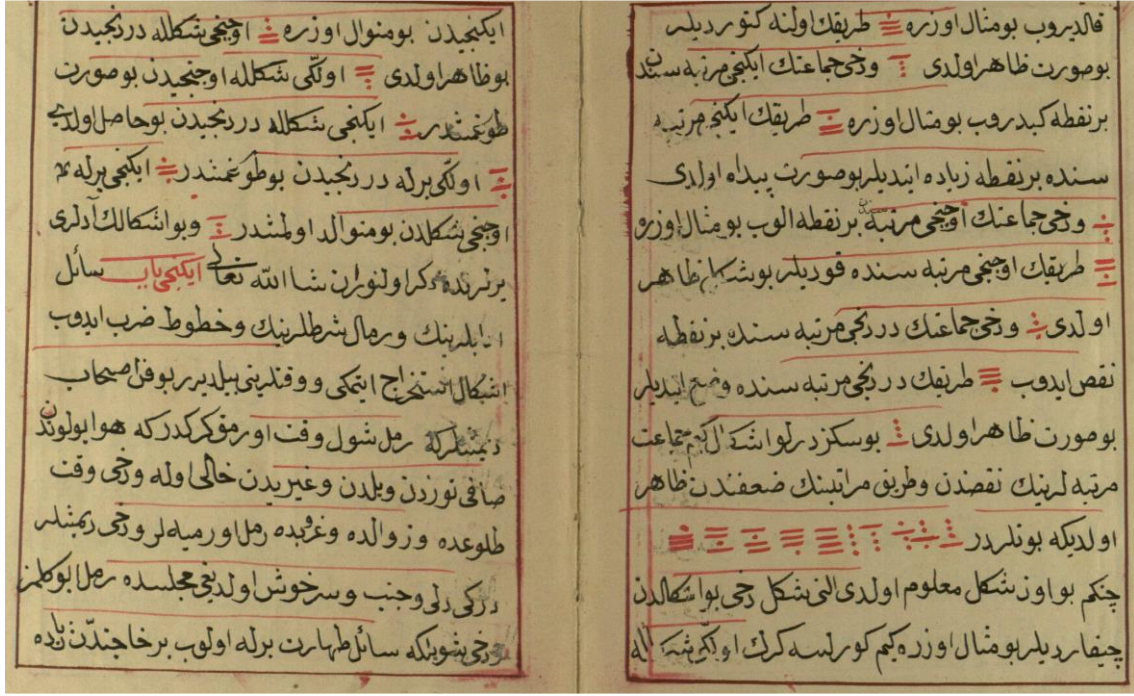 قالدیروب بومثال اوزره طریقك اولنه كتوردیلر
بوصورت ظاهر اولدی ودخی جماعتك ایكنجی مرتبه سندن
بر نقطه كیدروب بومثال اوزره طریقك ایكنجی مرتبه
سنده بر نقطه زیاده ایتدیلر بوصورت پیداه اولدی
ودخی جماعتك اوچنجی مرتبه سندن بر نقطه الوب بومثال اوزره
طریقك اوچنجی مرتبه سنده قودیلر بوشكل ظاهر
اولدی ودخی جماعتك دردنجی مرتبه سنده بر نقطه
نقص ایدوب طریقك دردنجی مرتبه سنده وضع ایتدیلر
بوصورت ظاهر اولدی بوسكز درلو اشكال كیم جماعت
مرتبه لرینك نقصدن وطریق مراتبنك ضعفندن ظاهر
اولدیكه بونلردر
چنكم بو اون شكل معلوم اولدی التی شكل دخی بواشكالدن
چیقاردیلر بومثال اوزره كیم كورلسه كرك اولكی شكل الله
ایكنجیدن بومنوال اوزره اوچنجی شكلله دردنجیدن
بوظاهر اولدی اولكی شكلله اوچنجیدن بوصورت
طوغمشدر ایكنجی شكلله دردنجیدن بوحاصل اولدی
اولكی برله دردنجیدن بوطوغمشدر ایكنجی برله
اوچنجی شكلدن بومتوالد اولمشدر وبواشكالك آدلری
یرلرینده ذكر اولنور ان شا الله تعالی ایكنجی باب سائل
ورمال شرطلرینك وخطوط ضرب ایدوب
اشكال استخراج ایتمكی ووقتلرینی بیلدیرر بوفن اصحاب
دیمشلركه رمل شول وقت اورمق كركدر كه هوا بولوتدن
صافی توزدن ویلدن وغیریدن خالی اوله ودخی وقت
طلوعده وزوالده وغروبده رمل اورمیه لر ودخی دیمشلر
دركی دلی وجنب وسرخوش اولدیغی مجلسده رمل
ودخی شویلكه سائل طهارت برله اولوب بر خاجتدن